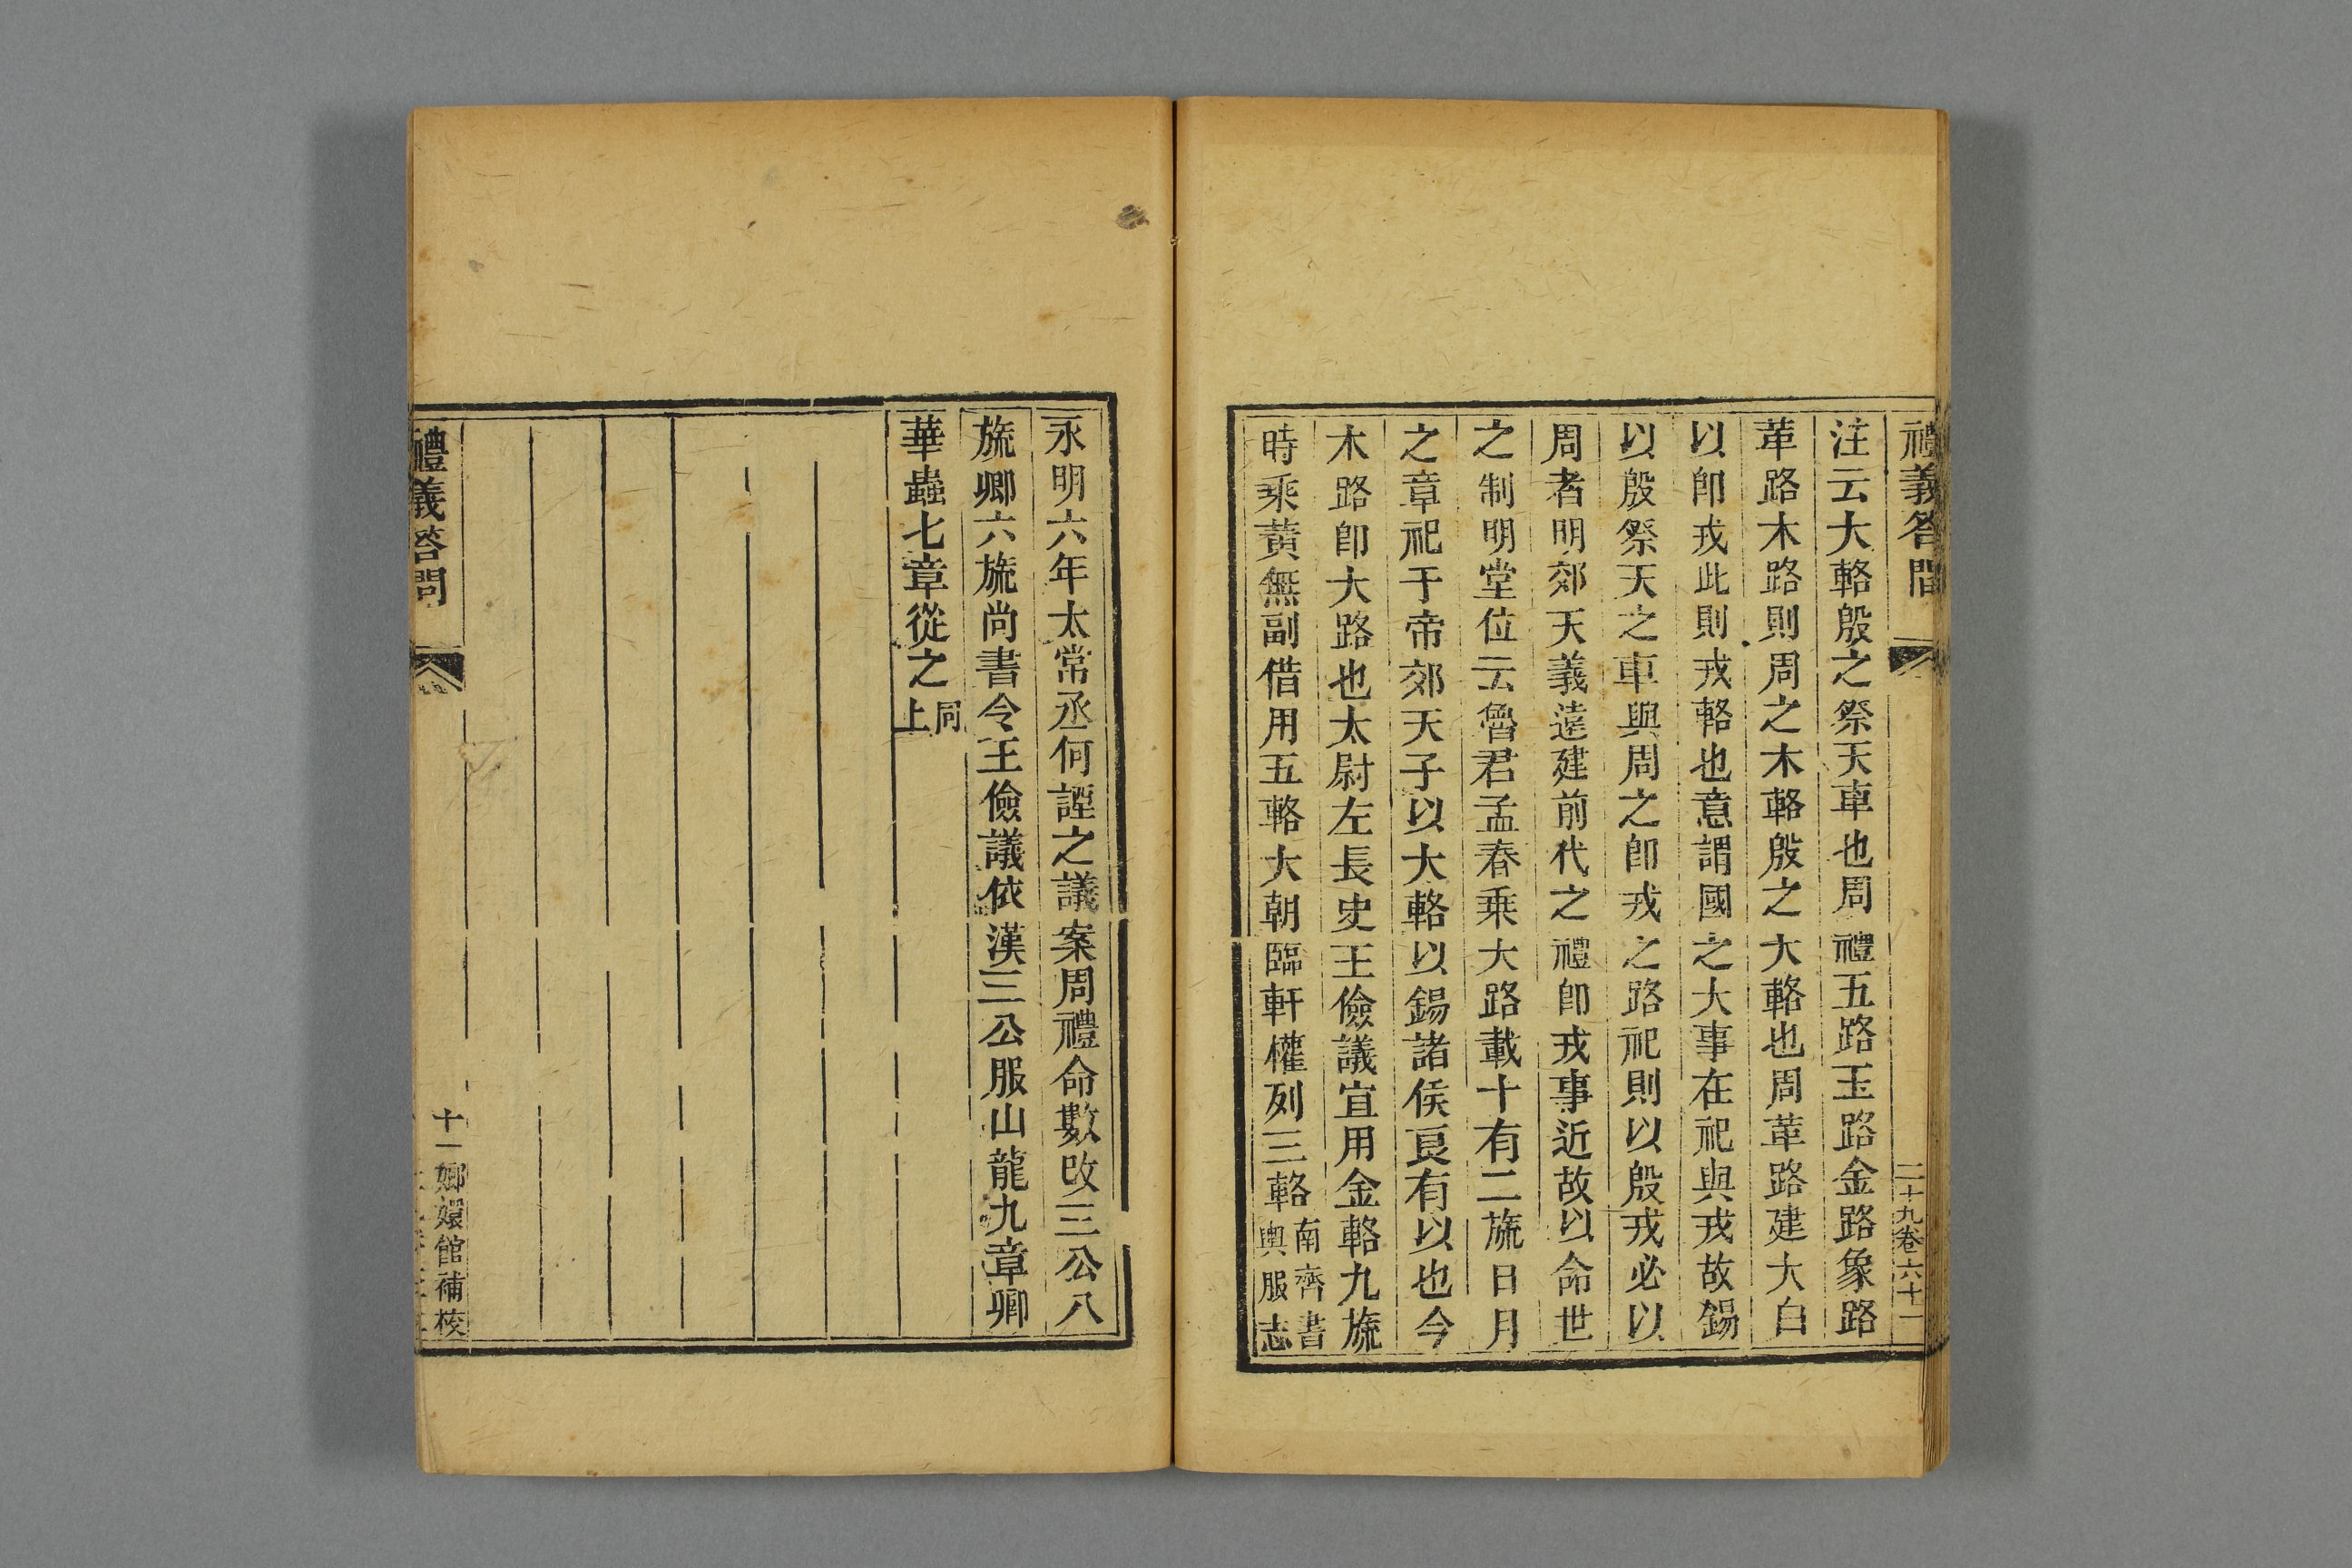 禮義答問
二十九卷六十一
注云大輅殷之祭天車也周禮五路玉路金路象路
革路木路則周之木輅殷之大輅也周革路建大白
以卽戎此則戎輅也意謂國之大事在祀與戎故錫
以殷祭天之車與周之卽戎之路祀則以殷戎必以
周者明郊天義遠建前代之禮卽戎事近故以命世
之制明堂位云魯君孟春乘大路載十有二旒日月
之章祀于帝郊天子以大輅以錫諸侯良有以也今
木路卽大路也太尉左長史王儉議宜用金輅九旒
時乘黃無副借用五輅大朝臨軒權列三輅南齊書輿服志
永明六年太常丞何諲之議案周禮命數改三公八
旒卿六旒尚書令王儉議依漢三公服山龍九章卿
華蟲七章從之同上
禮義答問
十一嫏嬛館補校